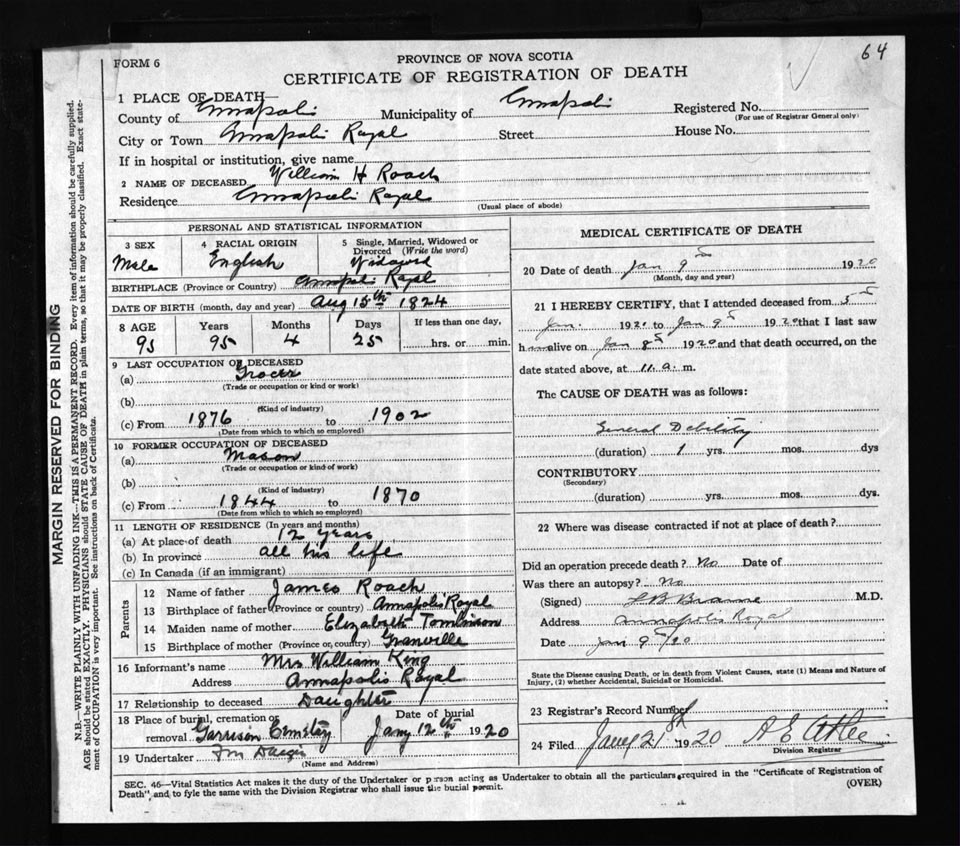 64
FORM 6
PROVINCE OF NOVA SCOTIA
CERTIFICATE OF REGISTRATION OF DEATH
1 PLACE OF DEATH—
County of Annapolis Municipality of Annapolis Registered No.
(For use of Registrar General only)
City or Town Annapolis Royal Street House No.
If in hospital or institution, give name
2 NAME OF DECEASED William H Roach
Residence Annapolis Royal
(Usual place of abode)
PERSONAL AND STATISTICAL INFORMATION
3 SEX 4 RACIAL ORIGIN 5 Single, Married, Widowed or Divorced (Write the word)
Male English Widowed
BIRTHPLACE (Province or Country) Annapolis Royal
DATE OF BIRTH (month, day and year) Aug 15th 1824
8 AGE Years Months Days If less than one day,
95 95 4 25 hrs. or min.
9 LAST OCCUPATION OF DECEASED
(a) Grocer
(Trade or occupation or kind or work)
(b)
(Kind of industry)
(c) From 1876 to 1902
(Date from which to which so employed)
10 FORMER OCCUPATION OF DECEASED
(a) Mason
(Trade or occupation or kind of work)
(b)
(Kind of industry)
(c) From 1844 to 1870
(Date from which to which so employed)
11 LENGTH OF RESIDENCE (In years and months)
(a) At place of death 12 years
(b) In province all his life
(c) In Canada (if an immigrant)
Parents
12 Name of father James Roach
13 Birthplace of father (Province or country) Annapolis Royal
14 Maiden name of mother Elizabeth Tomlinson
15 Birthplace of mother (Province or country) Granville
16 Informant's name Mrs William King
Address Annapolis Royal
17 Relationship to deceased Daughter
18 Place of burial, cremation or removal Garrison Cemetery Date of burial Jany 12th 1920
19 Undertaker
(Name and Address)
MEDICAL CERTIFICATE OF DEATH
20 Date of death Jan 9th 1920
(Month, day and year)
21 I HEREBY CERTIFY, that I attended deceased from 5th
Jan. 1920 to Jan 9th 1920 that I last saw
him alive on Jan 8th 1920 and that death occurred, on the
date stated above, at 11.a. m.
The CAUSE OF DEATH was as follows:
General Debility
(duration) 1 yrs. mos. dys
CONTRIBUTORY
(Secondary)
(duration) yrs. mos. dys.
22 Where was disease contracted if not at place of death?
Did an operation precede death? No Date of
Was there an autopsy? No
(Signed) M.D.
Address Annapolis Royal
Date Jan 9th/20
State the Disease causing Death, or in death from Violent Causes, state (1) Means and Nature of
Injury, (2) whether Accidental, Suicidal or Homicidal.
23 Registrar's Record Number
24 Filed Jany 21 1920
Division Registrar
SEC. 46—Vital Statistics Act makes it the duty of the Undertaker or person acting as Undertaker to obtain all the particulars required in the "Certificate of Registration of
Death", and to fyle the same with the Division Registrar who shall issue the burial permit.
(OVER)
MARGIN RESERVED FOR BINDING
N.B.—WRITE PLAINLY WITH UNFADING INK—THIS IS A PERMANENT RECORD. Every item of information should be carefully supplied.
AGE should be stated EXACTLY. PHYSICIANS should STATE CAUSE OF DEATH in plain terms, so that it may be properly classified. Exact state-
ment of OCCUPATION is very important. See instructions on back of Certificate.